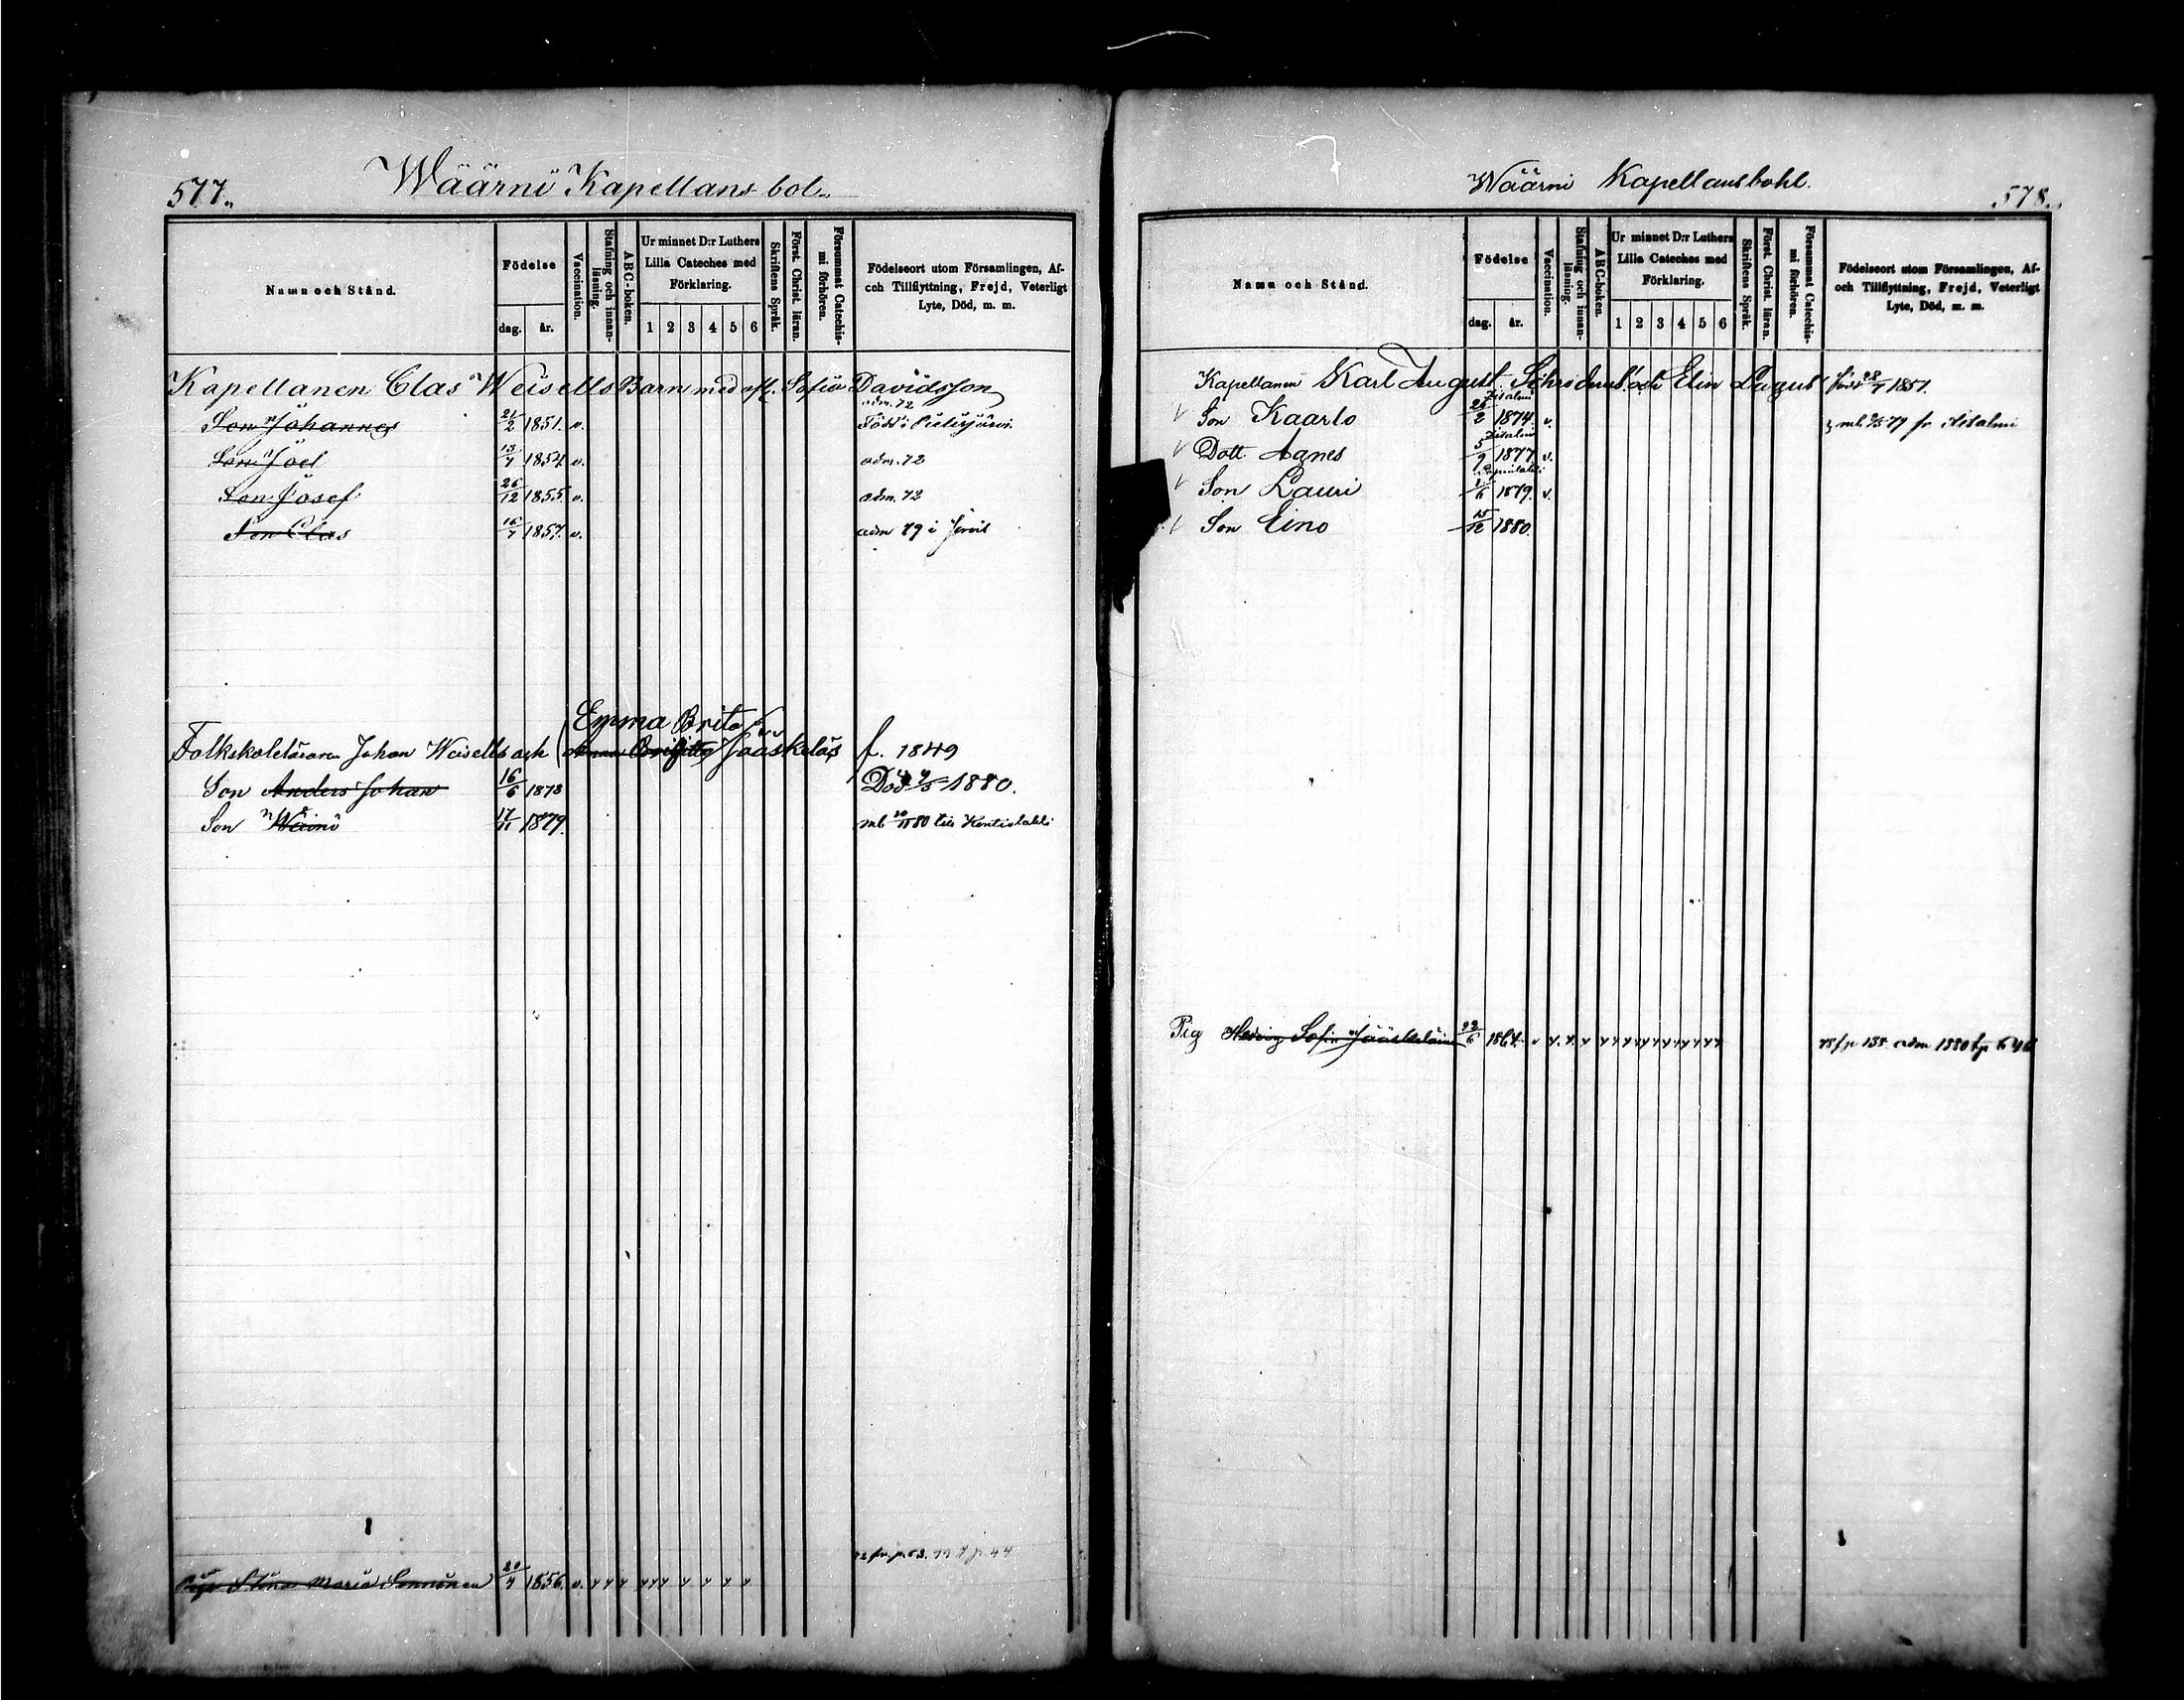 577.
Wäärni Kapellans bol.
Namn och Stånd.
Födelse
dag.
år.
Vaccination.
Stafning och innanläsning.
ABC-boken.
Ur minnet D:r Luthers
Lilla Cateches med
Förklaring.
1 2 3 4 5 6
Skriftens Språk.
Först. Christ. läran.
Försummat Catechismi förhören.
Födelseort utom Församlingen, Af-
och Tillflyttning, Frejd, Veterligt
Lyte, Död, m. m.
Kapellanen Clas Weisells Barn med afl. Sofia Davidsson
adm. 72
Son Johannes 21/2 1851. v. Född i
Son Joel 13/7 1854 v. adm. 72
Son Josef 26/12 1855. v. adm. 72
Son Clas 16/7 1857. v. adm 79 i
Emma Brita
Folkskoleläraren Johan Weisells och Jääskeläs f. 1849
Son Anders Johan 16/6 1878 Död 1880.
Son Wäinö 17/11 1879. mb 80 till Kontiolahti
fr. p. 63. 77 t p 44
Pig Stina Maria 20/4 1856. v. y y y y y y y y y y
Wäärni Kapellansbohl.
578.
Namn och Stånd.
Födelse
dag.
år.
Vaccination.
Stafning och innanläsning.
ABC-boken.
Ur minnet D:r Luthers
Lilla Cateches med
Förklaring.
1 2 3 4 5 6
Skriftens Språk.
Först. Christ. läran.
Försummat Catechismi förhören.
Födelseort utom Församlingen, Af-
och Tillflyttning, Frejd, Veterligt
Lyte, Död, m. m.
Kapellanen Karl August och Elin född 1851.
Iisalmi
Son Kaarlo 1874. v. mb. 79 fr. Iisalmi
Iisalmi
Dott. Agnes 5/9 1877. v.
Son Lauri 1879. v.
Son Eino 15/12 1880.
Pig Hedvig Sofia Jääskeläinen 22/6 1864. v y. y. y y y y y y y y y y y 78 fr p 188. adm 1880 t p 646